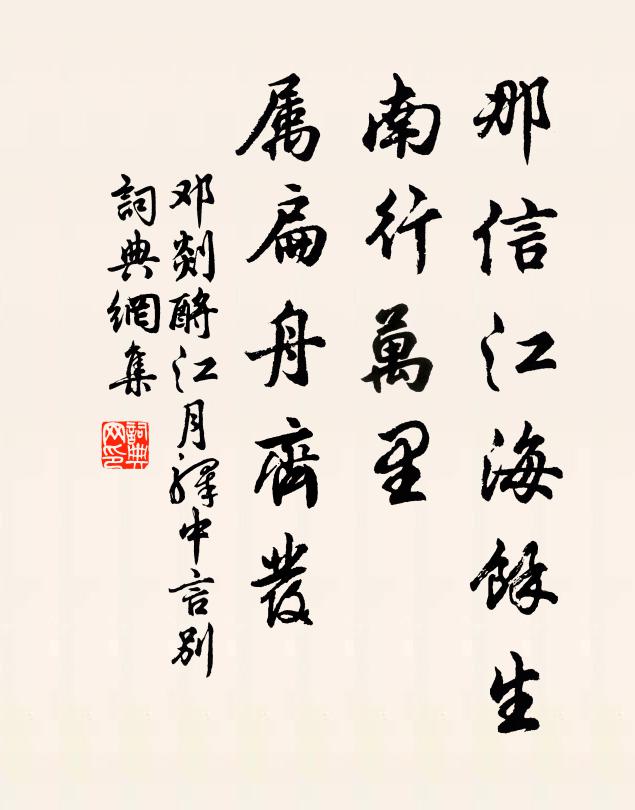 那信江海餘生
南行萬里
属扁舟齊發
邓剡酹江月驛中言别
詞典網集
詞典
网印